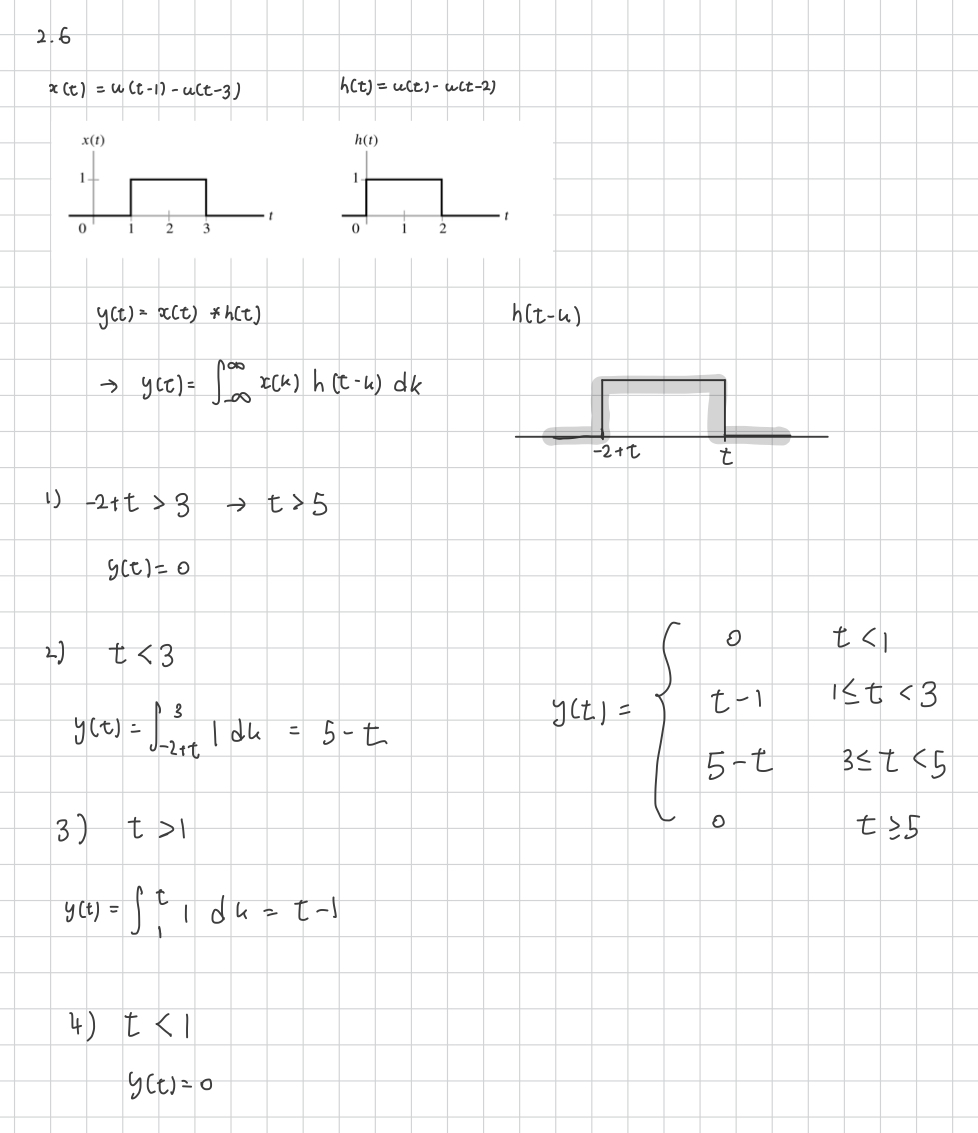 2.6
x(t) = u(t-1) - u(t-3) h(t) = u(t) - u(t-2)
x(t) h(t)
1 1
0 1 2 3 t 0 1 2 t
y(t) = x(t) * h(t) h(t-k)
→ y(t) = ∫_{-∞}^{∞} x(k) h(t-k) dk
-2+t t
1) -2+t > 3 → t > 5
y(t) = 0
2) t < 3
y(t) = ∫_{-2+t}^{3} 1 dk = 5-t
3) t > 1
y(t) = ∫_{1}^{t} 1 dk = t-1
4) t < 1
y(t) = 0
y(t) = {
0 t < 1
t-1 1 ≤ t < 3
5-t 3 ≤ t < 5
0 t ≥ 5